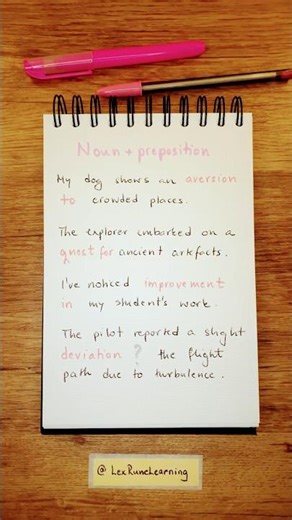 Noun + preposition
My dog shows an aversion
to crowded places.
The explorer embarked on a
quest for ancient artefacts.
I've noticed improvement
in my student's work.
The pilot reported a slight
deviation ? the flight
path due to turbulence.
@LexRuneLearning